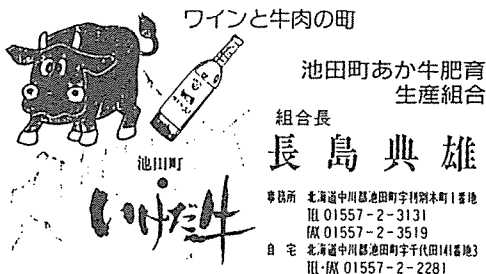 ワインと牛肉の町
池田町あか牛肥育
生産組合
組合長
長島典雄
池田町
いけだ牛
事務所 北海道中川郡池田町字利別本町1番地
TEL 01557-2-3131
FAX 01557-2-3519
自宅 北海道中川郡池田町字千代田141番地3
TEL・FAX 01557-2-2281